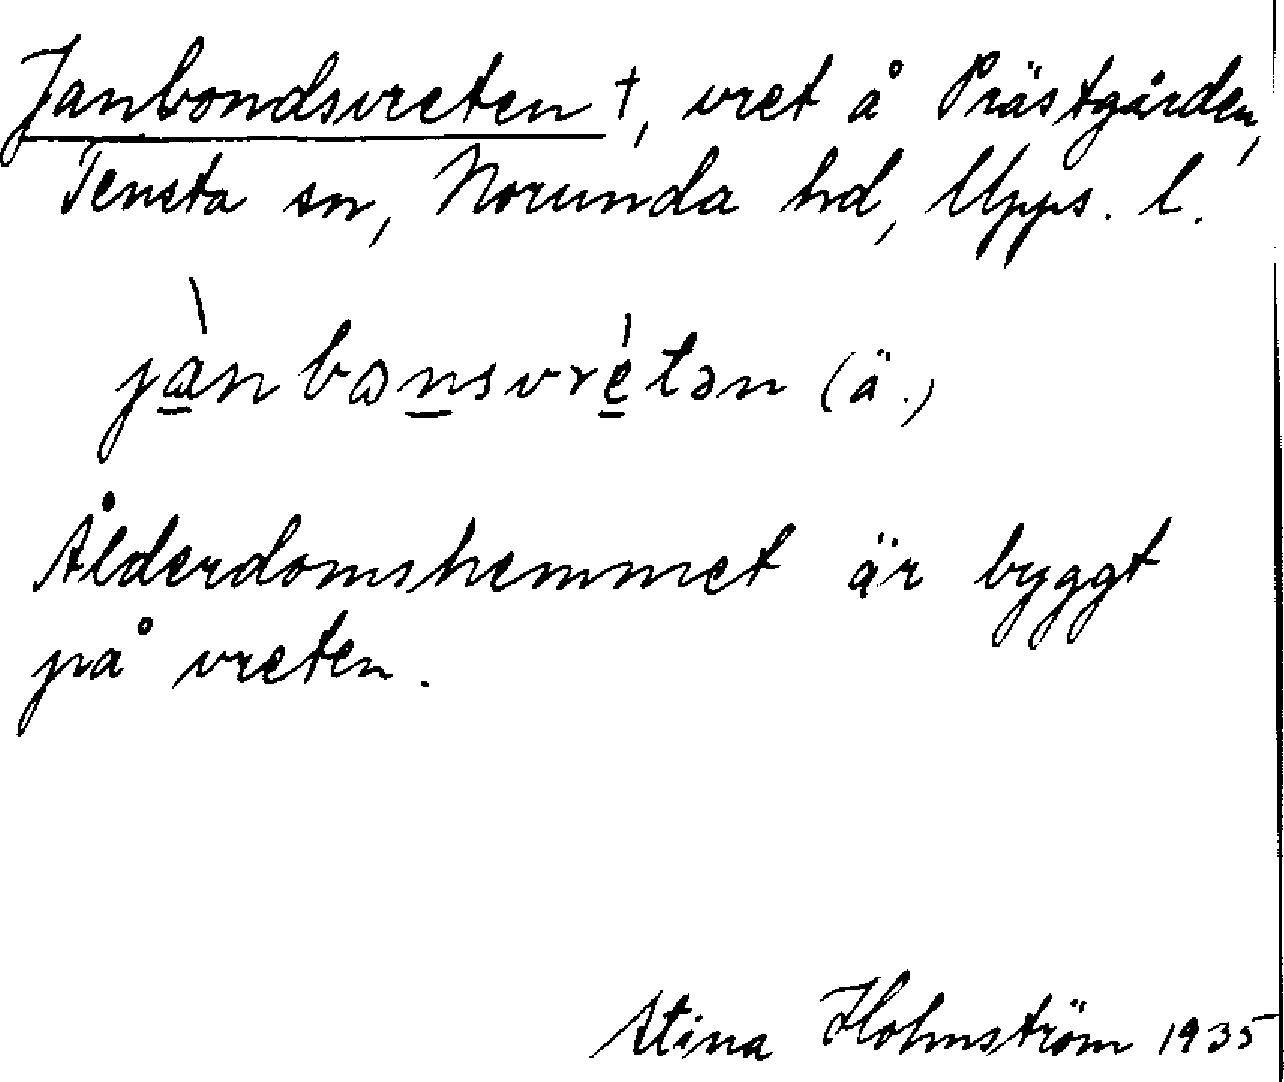 Janbondsvreten †, vret å Prästgården,
Tensta sn, Norunda hd, Upps. l.
jànbɷnsvrétən (ä.)
Ålderdomshemmet är byggt
på vreten.
Stina Holmström 1935